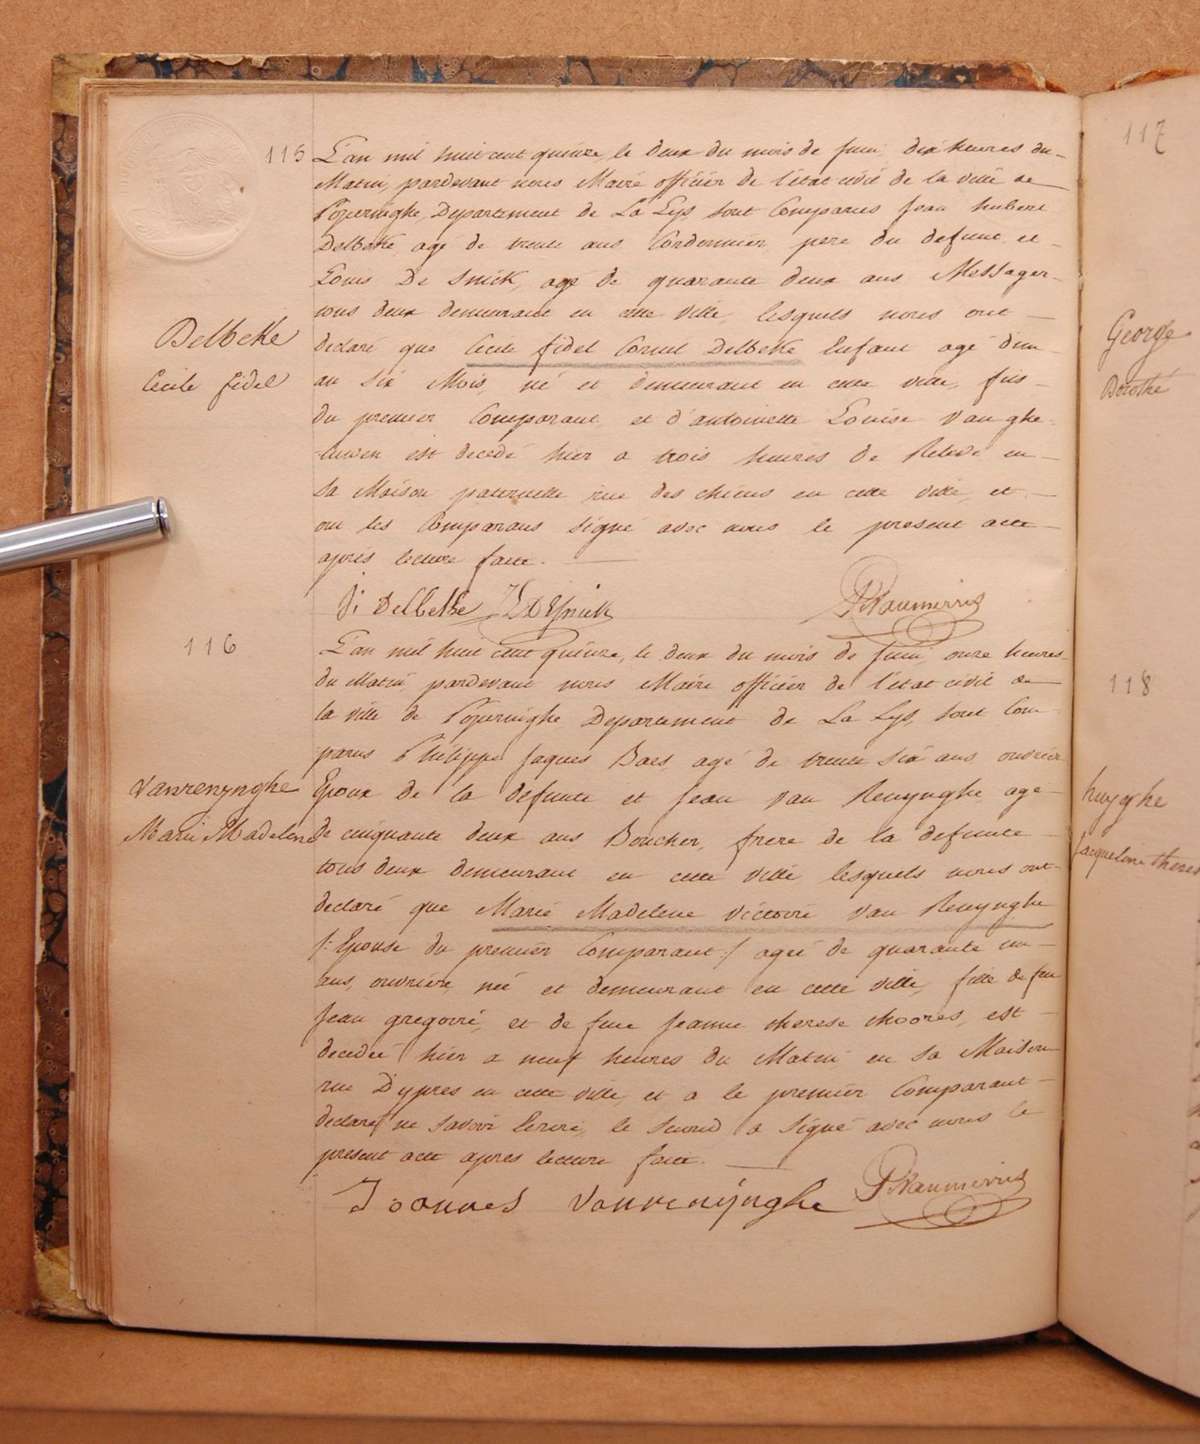 115
L'an mil huit cent quinze, le deux du mois de Juin, dix heures du
Matin, pardevant nous Maire officier de l'état civil de la ville de
Poperinghe, Departement de La Lys sont Comparus Jean hubert
Delbeke, agé de trente ans Cordonnier, pere du defunt, et
Louis De Snick, agé de quarante deux ans Messager
tous deux demeurant en cette ville, lesquels nous ont
Delbeke
declaré que Cecile fidel Corneil Delbeke Enfant agé d'un
Cecile fidel
an six Mois, né et demeurant en cette ville, fils
du premier Comparant, et d'antoinette Louise Van ghe-
est decedé hier a trois heures de Relevé en
sa Maison paternelle rue des chiens en cette ville, et
ont les Comparans signé avec nous le present acte
apres lecture faite.
Ji Delbeke L DeSnick
116
L'an mil huit cent quinze, le deux du mois de Juin, onze heures
du Matin, pardevant nous Maire officier de l'état civil de
la ville de Poperinghe Departement de La Lys, sont Com-
parus Philippe Jaques Baes agé de trente six ans ouvrier
Vanrenynghe
Epoux de la defunte et Jean Van Renynghe agé
Marie Madelene
de cinquante deux ans Boucher, frere de la defunte
tous deux demeurant en cette ville lesquels nous ont
declaré que Marie Madelene Victoire Van Renynghe
/: Epouse du premier Comparant :/ agée de quarante un
ans, ouvriere, née et demeurant en cette ville, fille de feu
Jean gregoire, et de feue Jeanne therese Moores, est
decedée hier a neuf heures du Matin en sa Maison
rue D'ypres en cette ville, et a le premier Comparant
declaré ne savoir Ecrire, le second a signé avec nous le
present acte apres lecture faite.
Joannes Vanrenijnghe
117
George
118
huyghe
Jacqueline theres